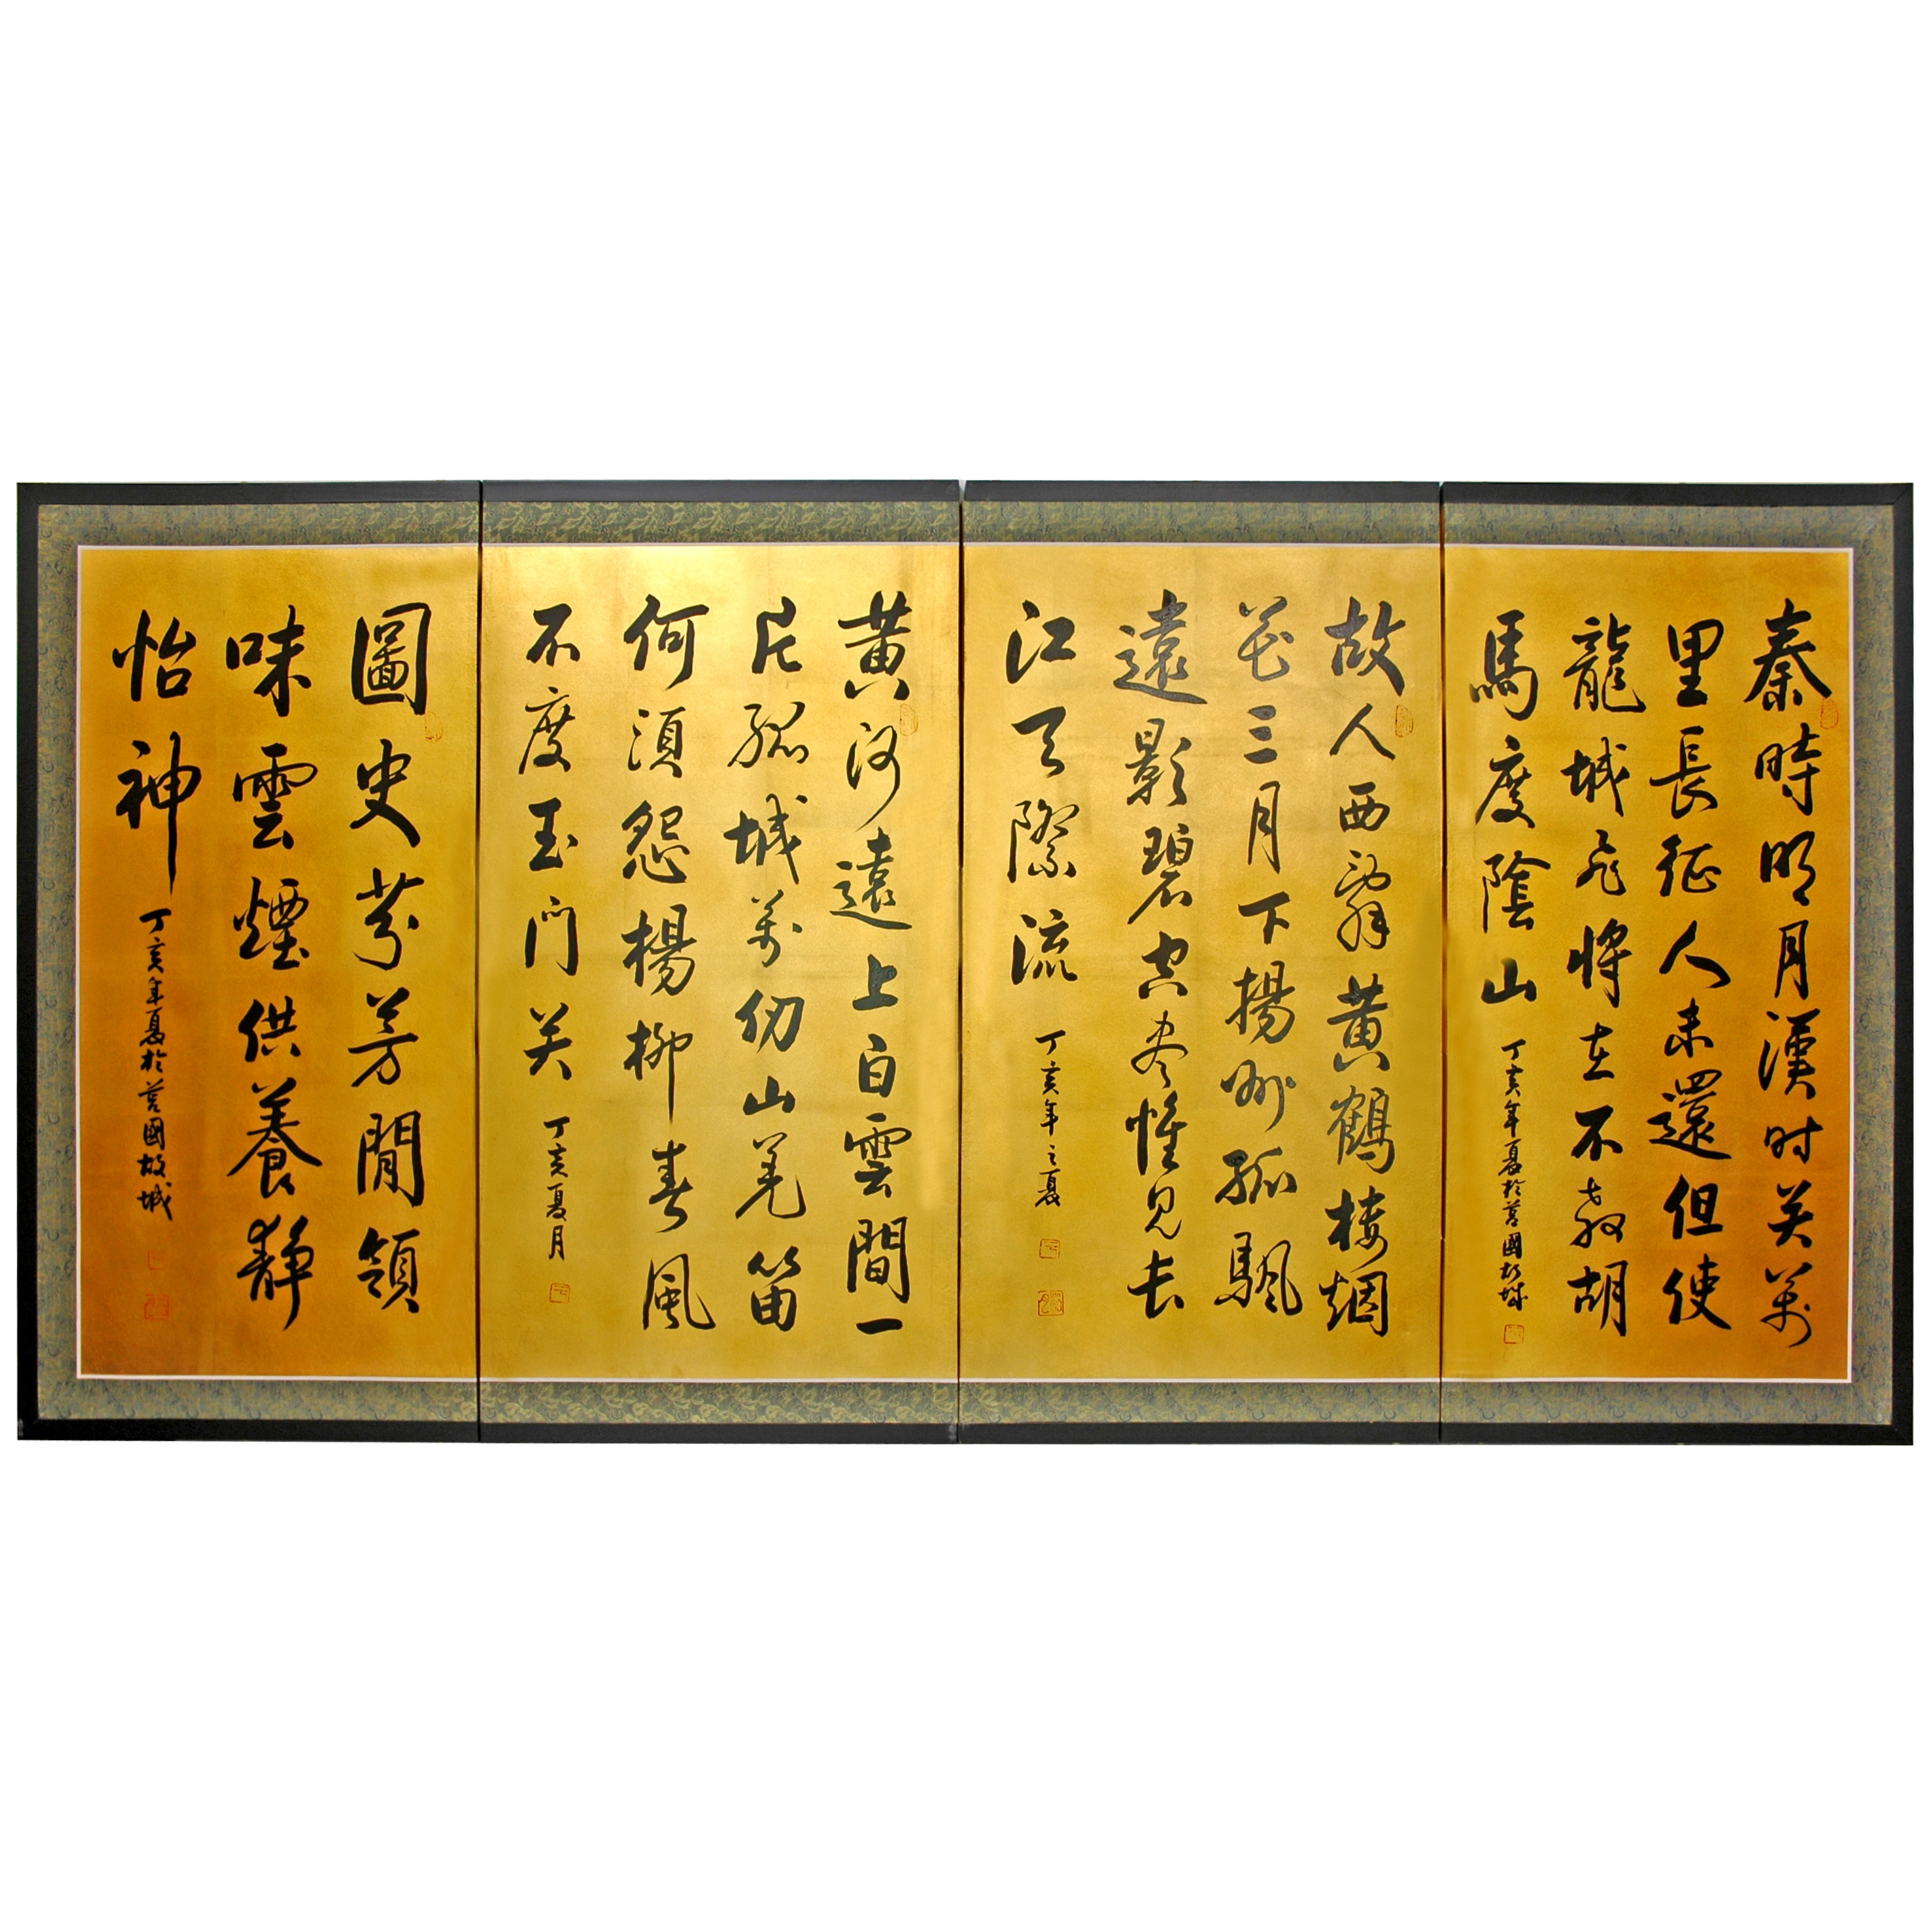 秦時明月漢时关萬
里長征人未還但使
龍城飛將在不教胡
馬度陰山
丁亥年夏於莒國故城
故人西辭黄鶴楼烟
花三月下揚州孤颿
遠影碧空尽惟見长
江天際流
丁亥年之夏
黄河遠上白雲間一
片孤城萬仞山羌笛
何須怨楊柳春風
不度玉门关
丁亥夏月
圖史芬芳閒領
味雲煙供養静
怡神
丁亥年夏於莒國故城